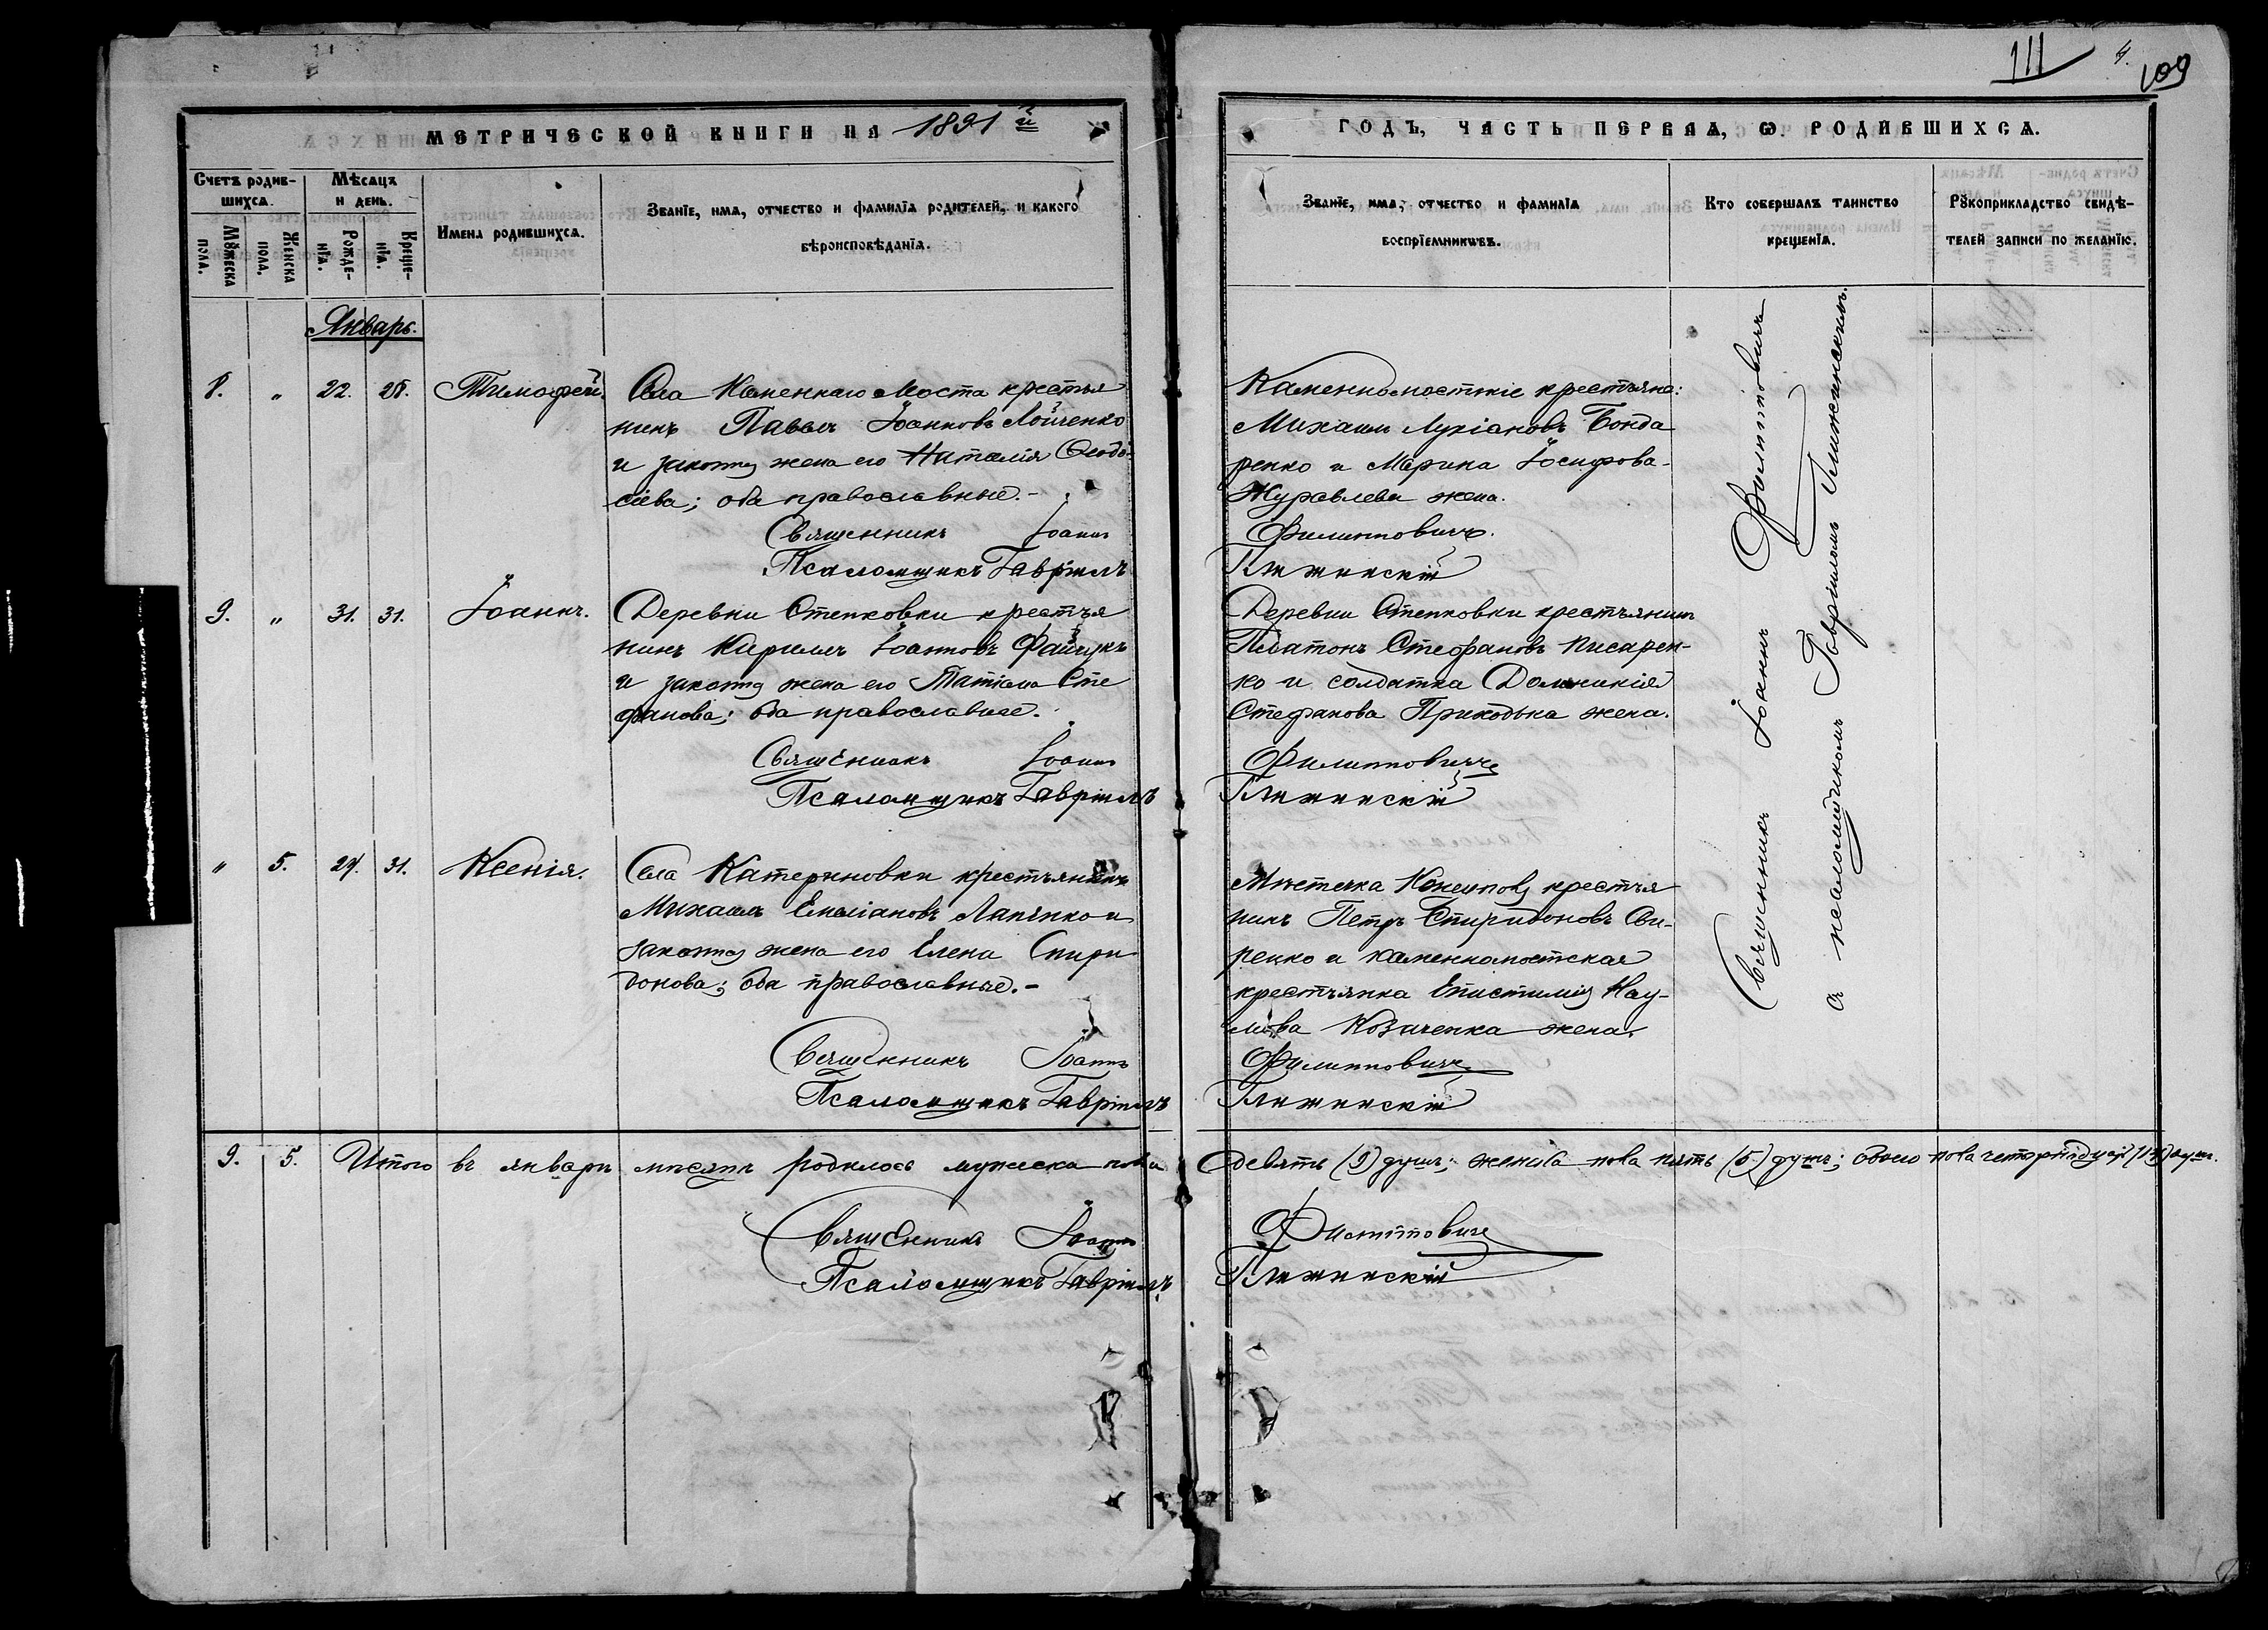 111 4. 109
МЕТРИЧЕСКОЙ КНИГИ НА 1891й
ГОДЪ, ЧАСТЬ ПЕРВАѦ, Ѡ РОДИВШИХСѦ.
Счетъ родив-
шихсѧ.
Мѣсѧцъ
и день.
Мꙋжеска
пола.
Женска
пола.
Рожде-
нїѧ.
Креще-
нїѧ.
Имена родившихсѧ.
Званїе, имѧ, отчество и фамилїѧ родителей, и какого
вѣроисповѣданїѧ.
Званїе, имѧ, отчество и фамилїѧ
воспрїемникѡвъ.
Кто совершалъ таинство
крещенїѧ.
Рꙋкоприкладство свидѣ-
телей записи по желанїю.
Январь.
8. " 22. 28. Тимофей.
Села Каменнаго Моста крестья
нинъ Павелъ Іоанновъ Лойченко
и законная жена его Наталія Ѳеодо-
сіева; оба православные.-
Священникъ Іоаннъ
Псаломщикъ Гавріилъ
Каменномостскіе крестьяне:
Михаилъ Лукіановъ Бонда
ренко и Марина Іосифова
Журавлева жена.
Филипповичъ.
Глижинскій
9. " 31. 31. Іоаннъ.
Деревни Степковки крестья
нинъ Кириллъ Іоанновъ Файчукъ
и законная жена его Татіана Сте
фанова; оба православные.
Священникъ Іоаннъ
Псаломщикъ Гавріилъ
Деревни Степковки крестьянинъ
Платонъ Стефановъ Писарен-
ко и солдатка Домникія
Стефанова Приходька жена.
Филипповичъ
Глижинскій
" 5. 24. 31. Ксенія.
Села Катериновки крестьянинъ
Михаилъ Емиліановъ Лапенко и
законная жена его Елена Спири
донова; оба православные.-
Священникъ Іоаннъ
Псаломщикъ Гавріилъ
Мѣстечка крестья
нинъ Петръ Спиридоновъ Сви-
ренко и каменномостская
крестьянка Епистимія Нау-
мова Козаченка жена.
Филипповичъ
Глижинскій
Священникъ Іоаннъ Филипповичъ
съ псаломщикомъ Гавріиломъ Глижинскимъ.
9. 5. Итого въ январѣ мѣсяцѣ родилось мужеска пола девять (9) душъ; женска пола пять (5) душъ; обоего пола четырнадцать (14) душъ.
Священникъ Іоаннъ Филипповичъ
Псаломщикъ Гавріилъ Глижинскій